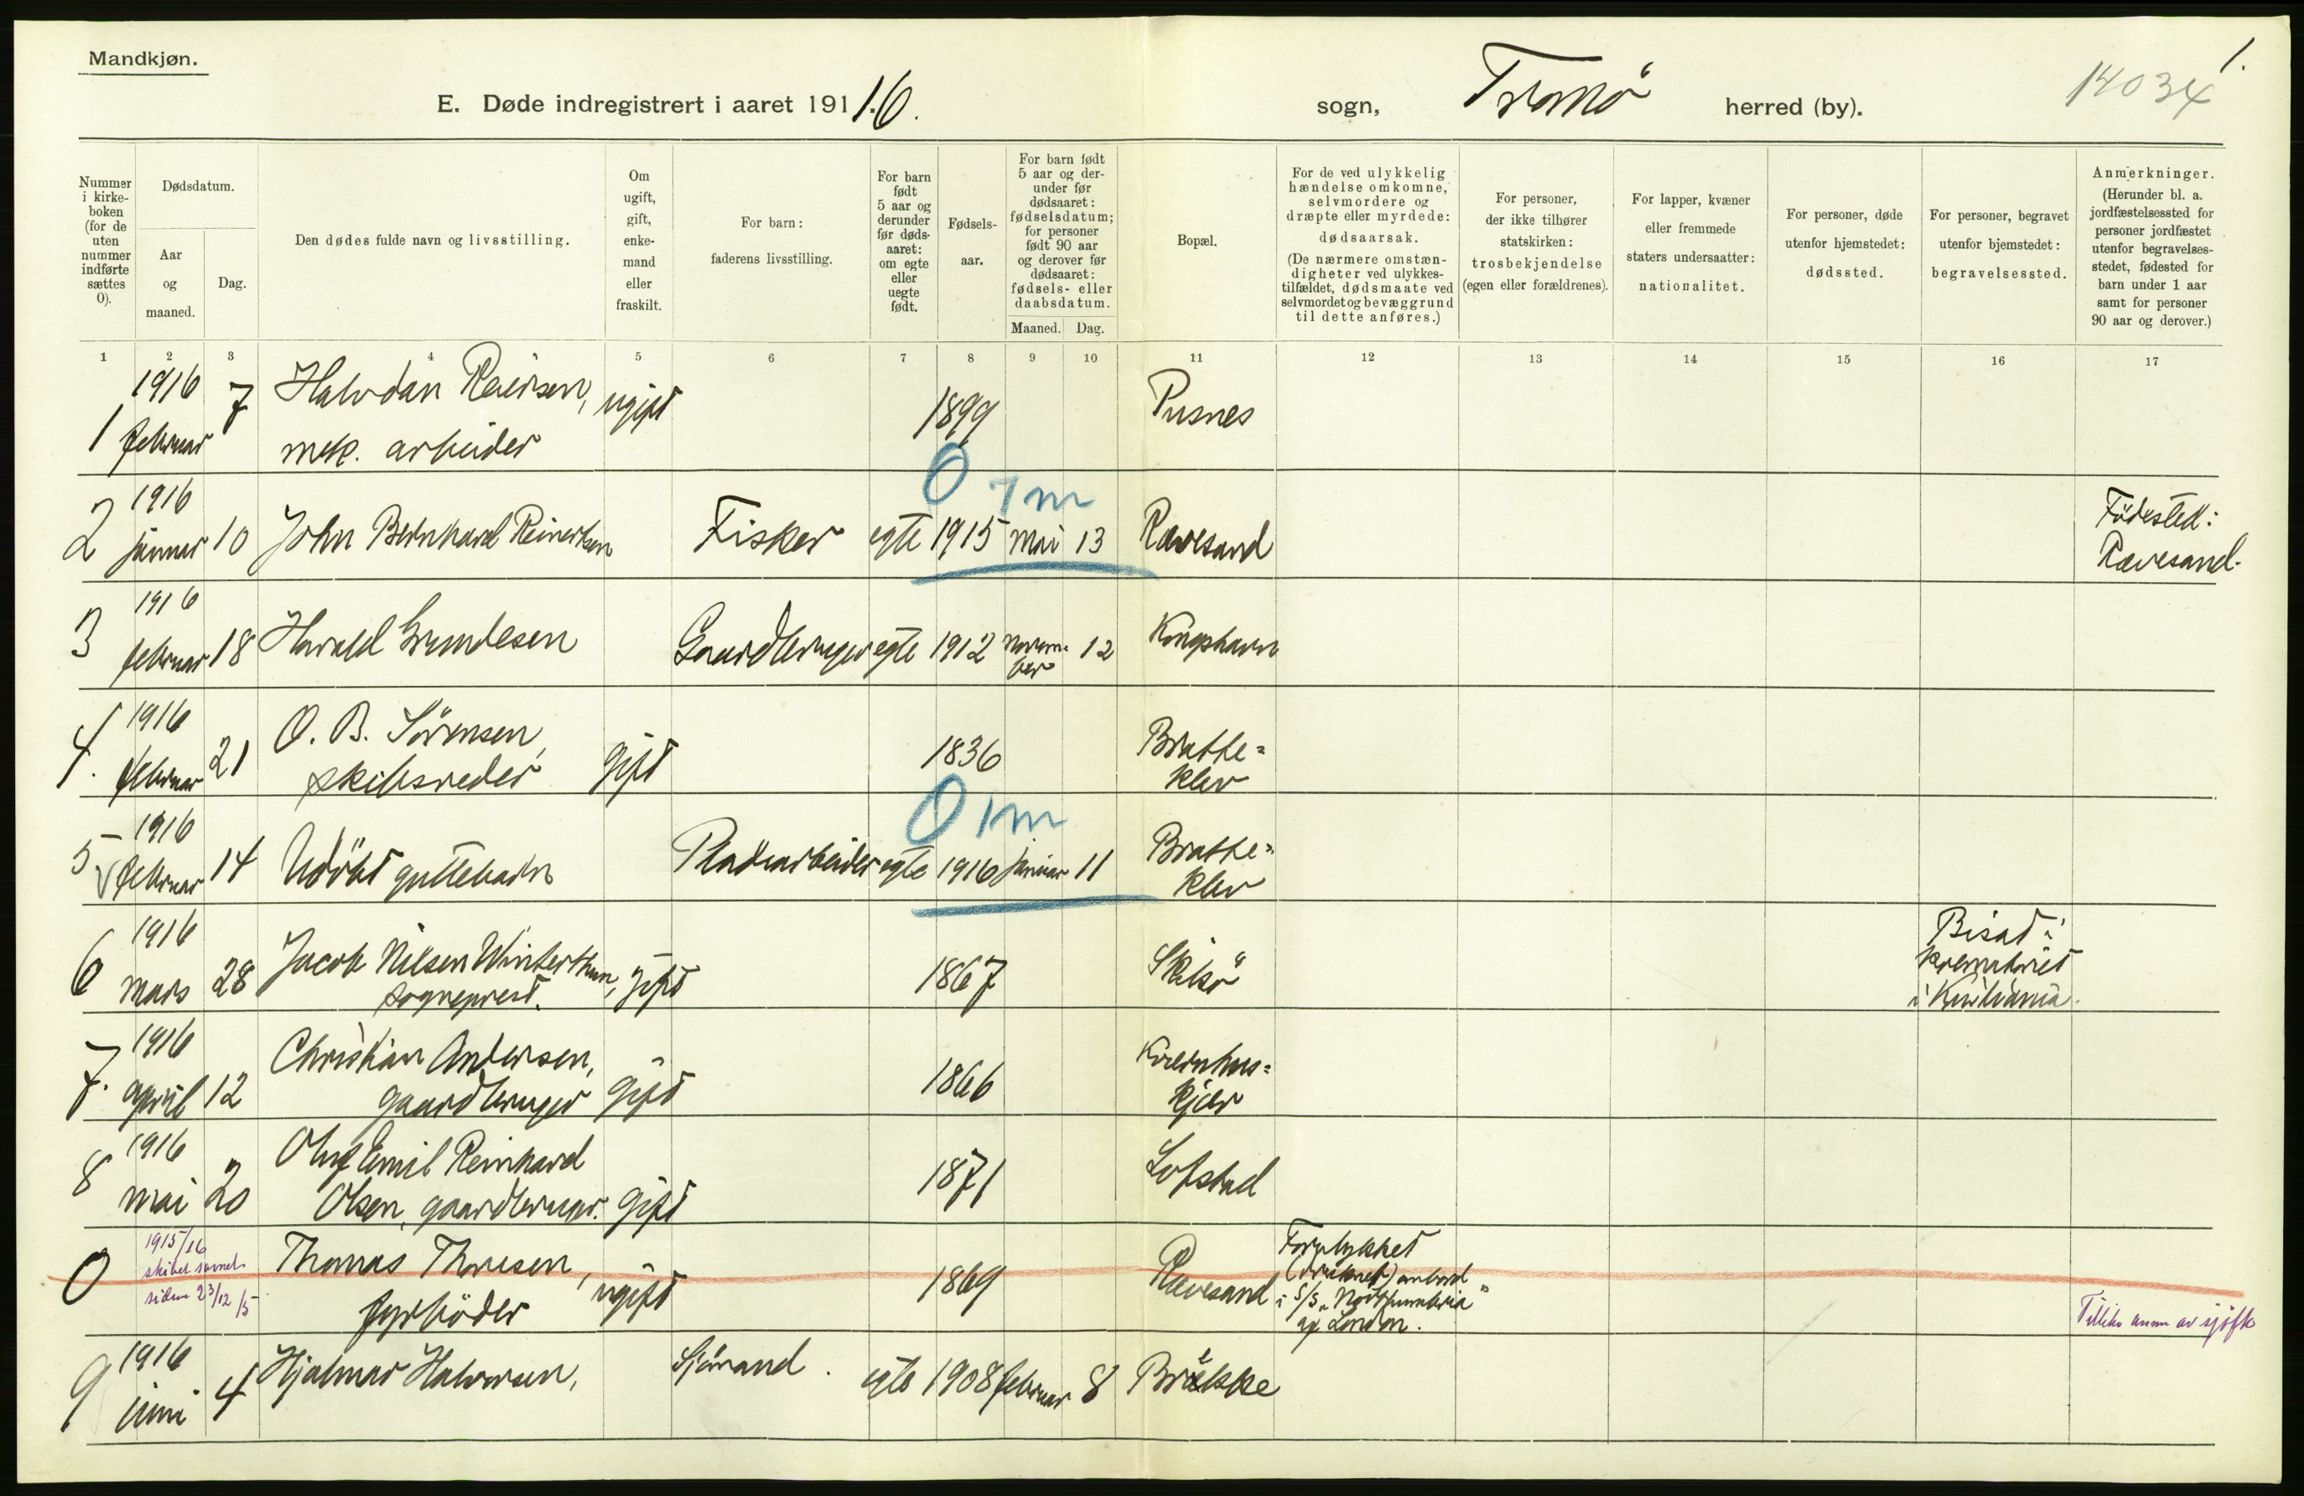 Mandkjøn.
1.
14034
E. Døde indregistrert i aaret 1911.6.
sogn, Tromø herred (by).
Nummer i kirke-boken (for de uten nummer indførte sættes 0).
Dødsdatum.
Aar og maaned.
Dag.
Den dødes fulde navn og livsstilling.
Om ugift, gift, enke-mand eller fraskilt.
For barn: faderens livsstilling.
For barn født 5 aar og derunder før døds-aaret: om egte eller uegte født.
Fødsels-aar.
For barn født 5 aar og der-under før dødsaaret: fødselsdatum; for personer født 90 aar og derover før dødsaaret: fødsels- eller daabsdatum.
Maaned. Dag.
Bopæl.
For de ved ulykkelig hændelse omkomne, selvmordere og dræpte eller myrdede: dødsaarsak. (De nærmere omstæn-digheter ved ulykkes-tilfældet, dødsmaate ved selvmordet og bevæggrund til dette anføres.)
For personer, der ikke tilhører statskirken: trosbekjendelse (egen eller forældrenes).
For lapper, kvæner eller fremmede staters undersaatter: nationalitet.
For personer, døde utenfor hjemstedet: dødssted.
For personer, begravet utenfor hjemstedet: begravelsessted.
Anmerkninger. (Herunder bl. a. jordfæstelsessted for personer jordfæstet utenfor begravelses-stedet, fødested for barn under 1 aar samt for personer 90 aar og derover.)
1 2 3 4 5 6 7 8 9 10 11 12 13 14 15 16 17
1 1916 februar 7 Halvdan Reiersen, mek. arbeider ugift 1899 Pusnes
0 7m
2 1916 januar 10 John Bernhard Reinertsen Fisker egte 1915 mai 13 Rævesand Födested: Rævesand.
3 1916 februar 18 Harald Gundesen Gaardbruger egte 1912 november 12 Kongshavn
4. 1916 februar 21 O. B. Sörensen, skibsreder gift 1836 Bratte=klev
0 1m
5 1916 februar 14 Udöbt guttebarn Pladearbeider egte 1916 januar 11 Bratte=klev
6 1916 mars 28 Jacob Nilsen Winterthun, sogneprest. gift 1867 Skilsö Bisat i krematoriet i Kristiania.
7. 1916 april 12 Christian Andersen, gaardbruger gift 1866 Kvernhus=kjær
8 1916 mai 20 Oluf Emil Reinhard Olsen, gaardbruger. gift 1871 Lofstad
0 1915/16 skibet savnet siden 23/12 15 Thomas Thoresen, fyrböder ugift 1869 Rævesand Forulykket (druknet) ombord i S/S "Northumbria" af London. av sjöfk
9 1916 juni 4 Hjalmar Halvorsen, Sjömand. egte 1908 februar 8 Brekke